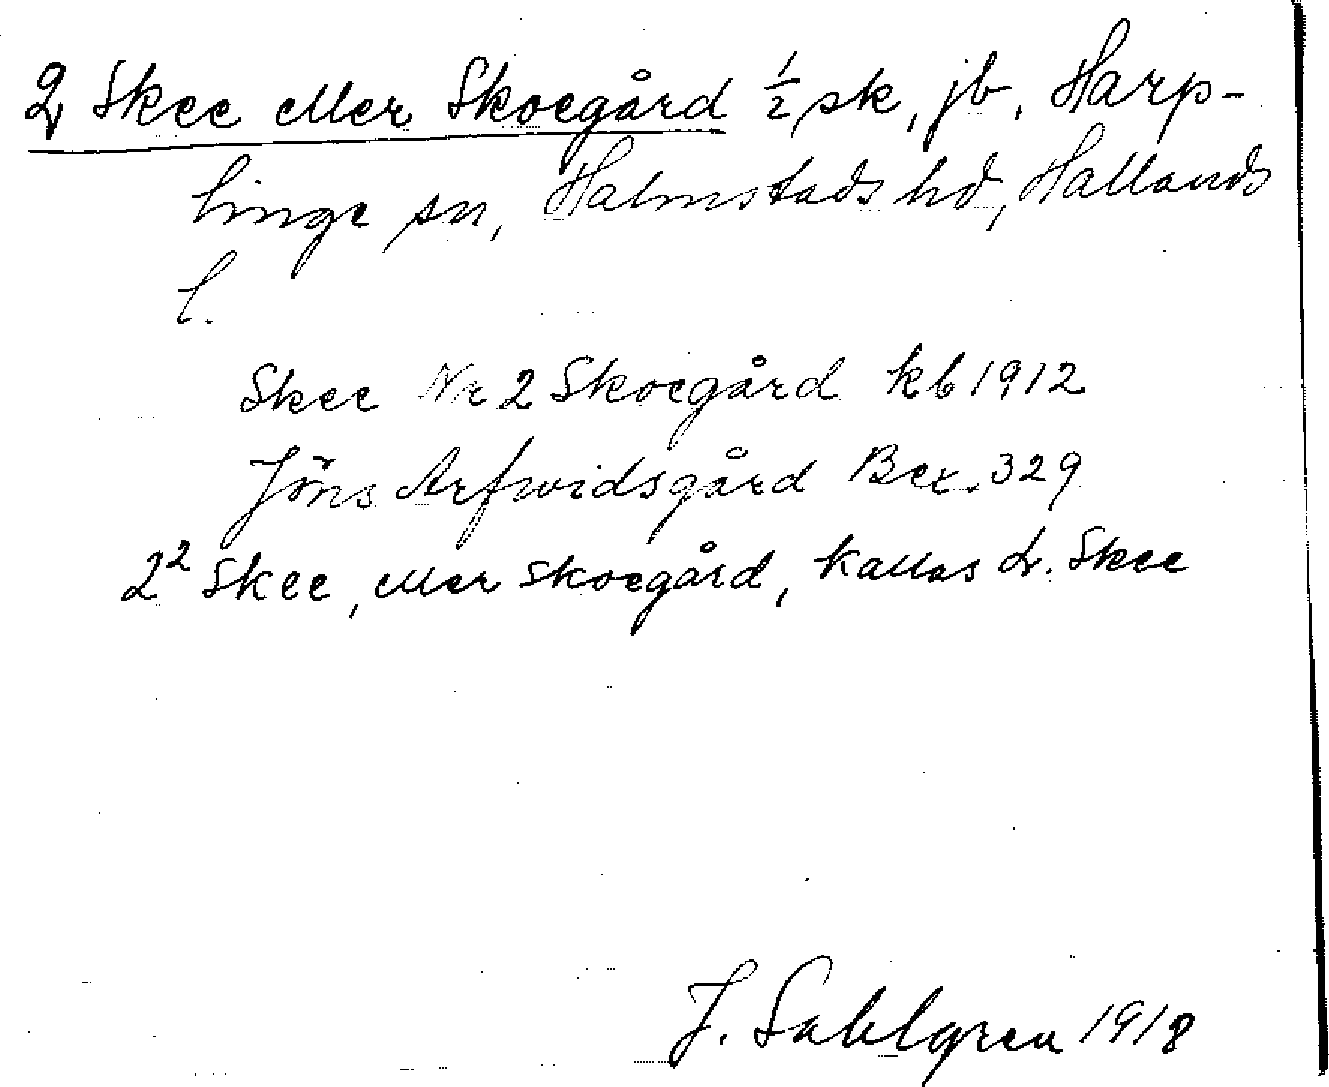 2 Skee eller Skoegård 1/2 sk, jb. Harp-
linge sn, Halmstads hd, Hallands
l.
Skee Nr 2 Skoegård kb 1912
Jöns Arfwidsgård Bex. 329
2² Skee, eller Skoegård, kallas L. Skee
J. Sahlgren 1918